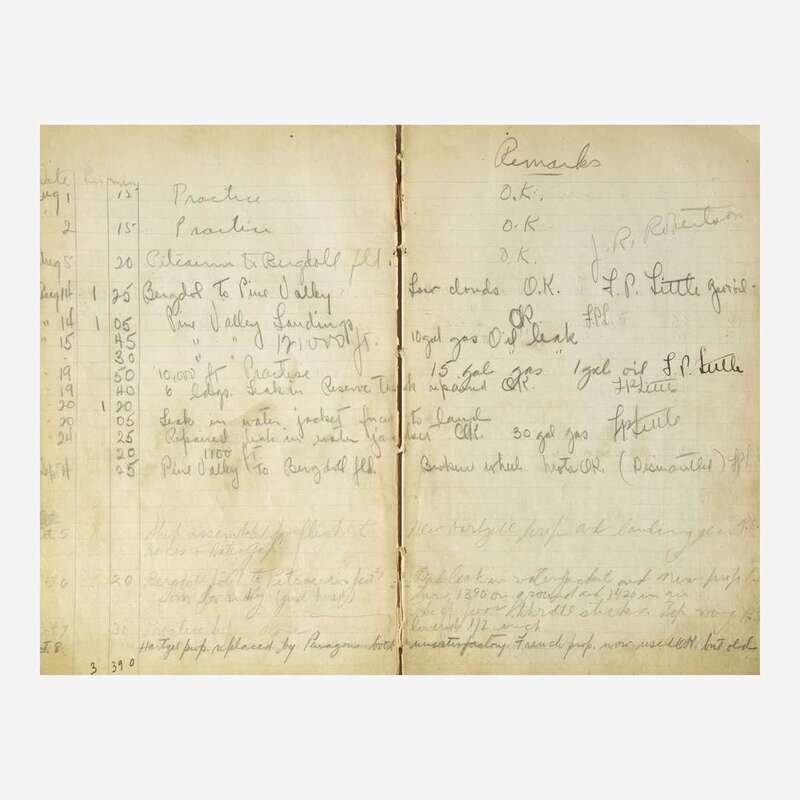 Remarks
Aug 1 15 Practice O.K.
2 15 Practice O.K
Aug 5 20 to Bergdoll fld. O.K. J. R. Robertson
Aug 14 1 25 Bergdol to Pine Valley Low clouds O.K. F.P. Little
" 14 1 05 Pine Valley Landings OK F.P.L.
" 15 45 " " 12,000 ft. 10 gal gas Oil leak
30
19 50 "10,000 ft" Practise 15 gal gas 1 gal oil F.P. Little
19 40 6 ldgs. Leak in Reserve Tank repaired OK. FPLittle
20 1 20
20 05 Leak in water jacket forced to land
24 25 Repaired leak in water jacket OK. 30 gal gas FPLittle
20 1100 ft.
Sept 4 25 Pine Valley To Bergdoll fld. Broken wheel Motor OK. (Dismantled) FPL
5 Ship assembled New Hartzell prop and landing gear
6 20 Bergdoll field to leak in water jacket and new prop
1390 on ground and 1420 in air
Top wing
7 30 lowered 1/2 inch
8 Hartzel prop. replaced by Paragon both unsatisfactory. French prop. now used OK. but old
3 390